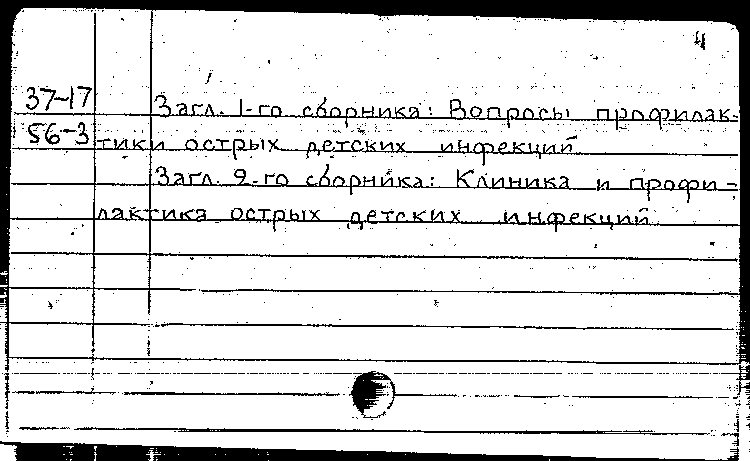 4
37-17 Загл. 1-го сборника: Вопросы профилак-
56-3 тики острых детских инфекций
Загл. 2-го сборника: Клиника и профи-
лактика острых детских инфекций